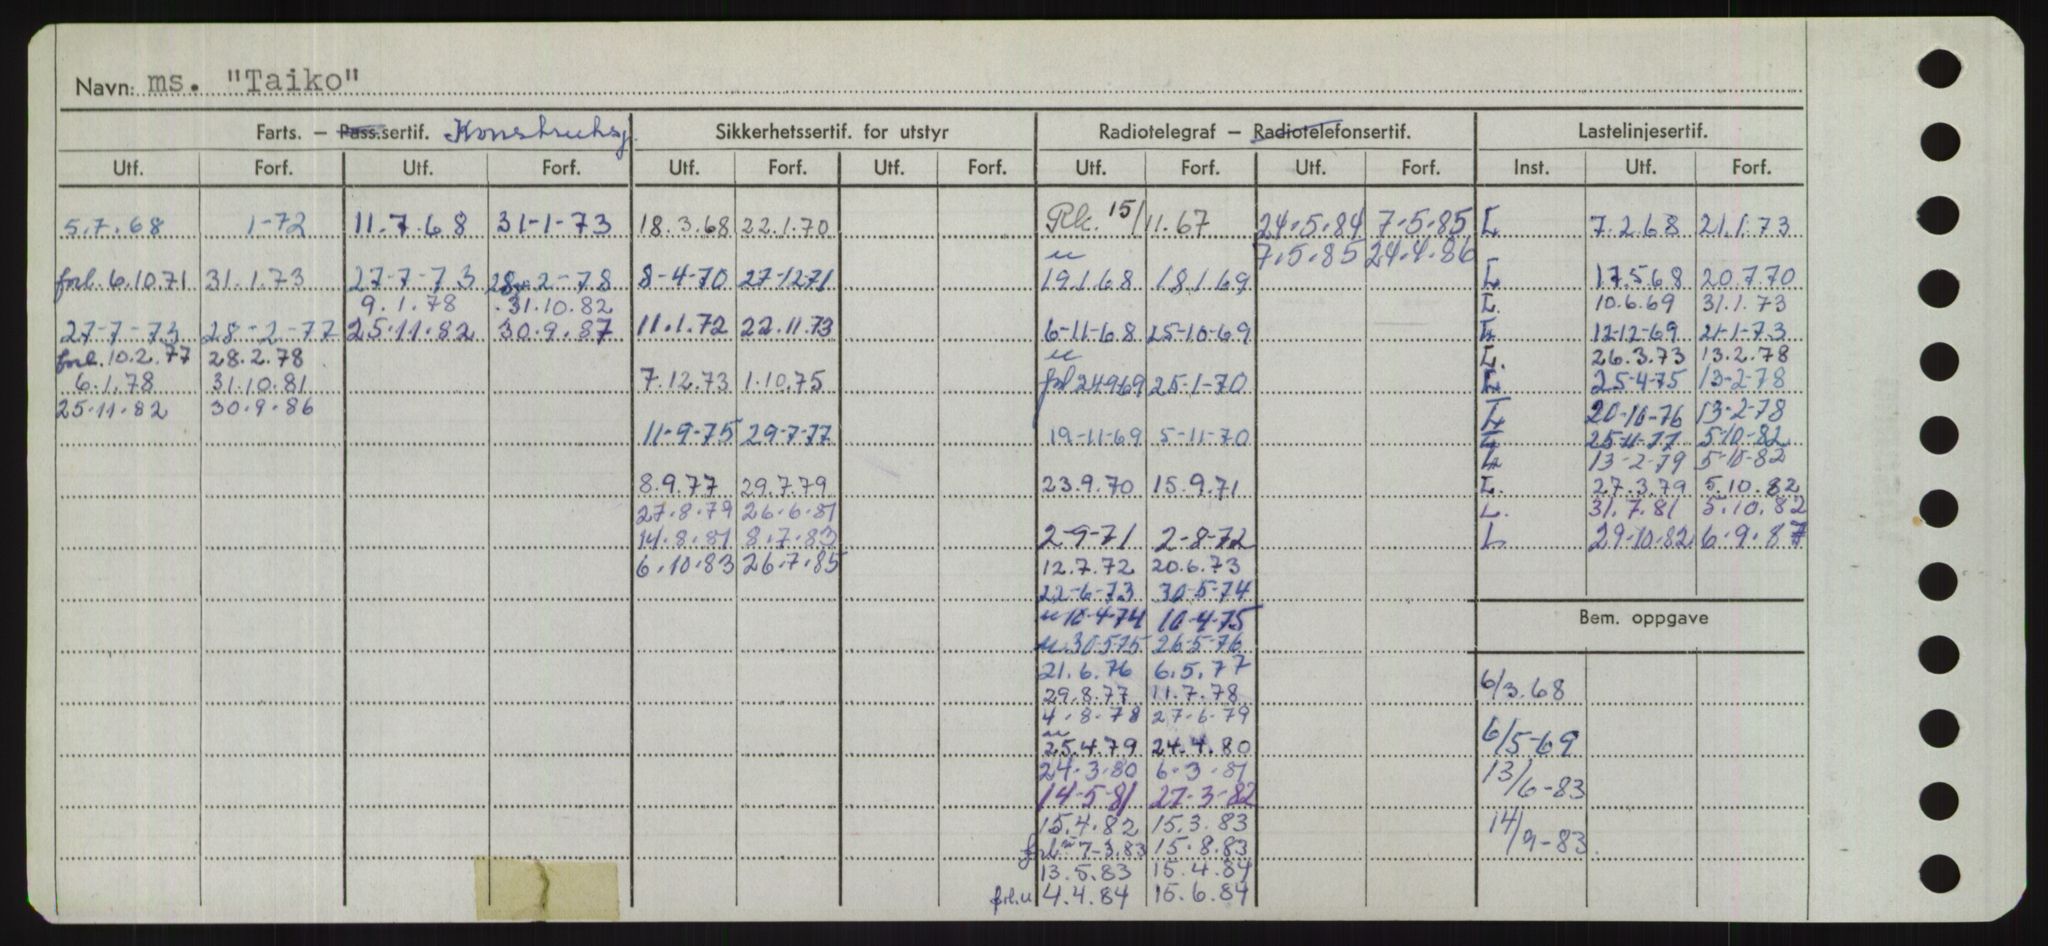 Navn: ms. "Taiko"
Farts. – Pass.sertif. Konstruksj. Sikkerhetssertif. for utstyr Radiotelegraf – Radiotelefonsertif. Lastelinjesertif.
Utf. Forf. Utf. Forf. Utf. Forf. Utf. Forf. Utf. Forf. Utf. Forf. Inst. Utf. Forf.
5.7.68 1-72 11.7.68 31-1-73 18.3.68 22.1.70 Rk. 15/11.67 24.5.84 7-5.85 L 7.2.68 21.1.73
u 7.5.85 24.4.86
forl. 6.10.71 31.1.73 27-7-73 28-2-78 8-4-70 27-12-71 19.1.68 18.1.69 L 17.5.68 20.7.70
9.1.78 31.10.82 L. 10.6.69 31.1.73
27-7-73 28-2-77 25.11.82 30.9.87 11.1.72 22.11.73 6-11-68 25-10-69 L 12-12-69 21-1-73
forl. 10.2.77 28.2.78 u L. 26.3.73 13.2.78
6.1.78 31.10.81 7.12.73 1.10.75 forl 24-9-69 25-1-70 L 25-4-75 13-2-78
25.11.82 30.9.86 L 20-10-76 13-2-78
11-9-75 29-7-77 19-11-69 5-11-70 L 25-11-77 5-10-82
L 13-2-79 5-10-82
8.9.77 29.7.79 23.9.70 15.9.71 L. 27.3.79 5.10.82
27.8.79 26.6.81 L. 31.7.81 5.10.82
14.8.81 8.7.83 2-9-71 2-8-72 L 29-10-82 6-9-87
6.10.83 26.7.85 12.7.72 20.6.73
22-6-73 30-5-74
u 10-4-74 10-4-75 Bem. oppgave
u. 30-5-75 26-5-76
21.6.76 6.5.77
29.8.77 11.7.78 6/3.68
4.8.78 27-6-79
u
25.4.79 24.4.80 6/5-69
24.3.80 6.3.81 13/6-83
14-5-81 27-3-82
15.4.82 15.3.83 14/9-83.
forl. 7-3.83 15.8.83
13.5.83 15.4.84
forl. u 4.4.84 15.6.84